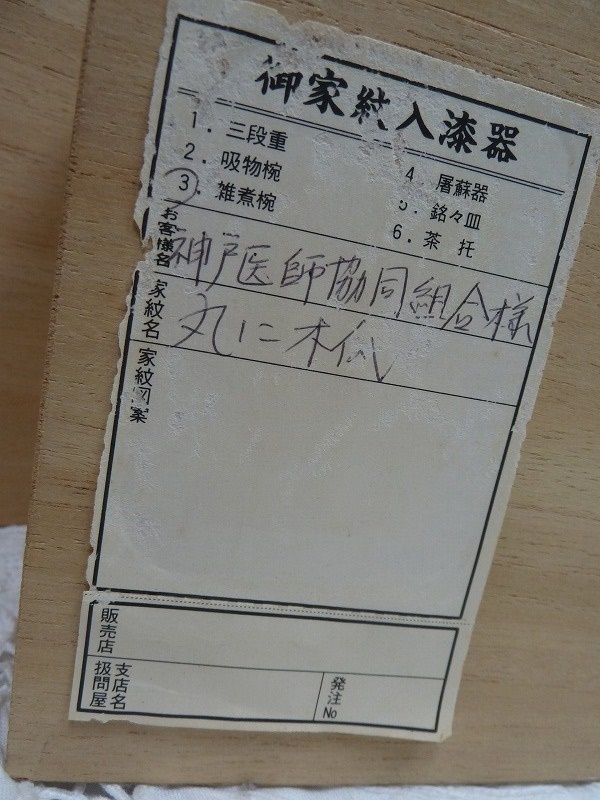 御家紋入漆器
1. 三段重
2. 吸物椀
3. 雑煮椀
4. 屠蘇器
5. 銘々皿
6. 茶托
お客様名 神戸医師協同組合様
家紋名 丸に木瓜
家紋図案
販売店
支店名
扱問屋
発注No